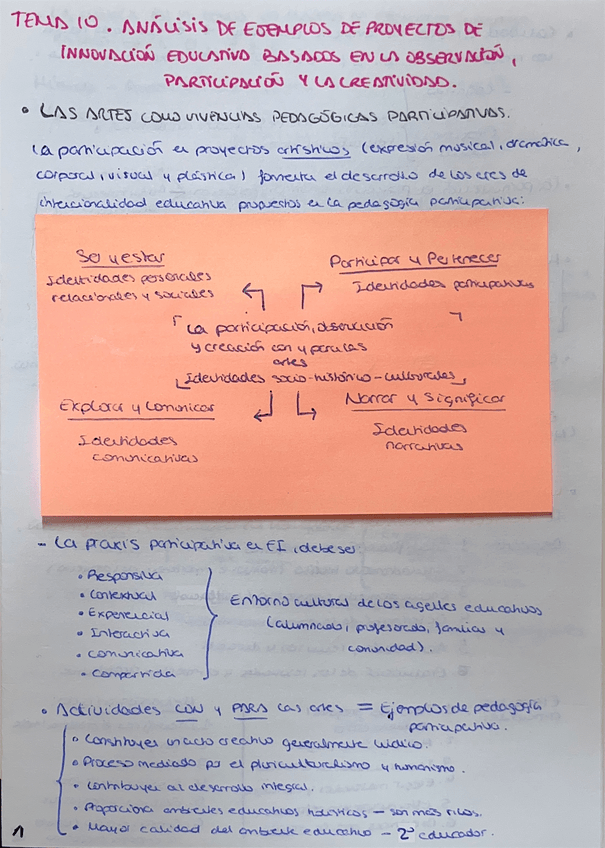 TEMA 10. ANÁLISIS DE EJEMPLOS DE PROYECTOS DE
INNOVACIÓN EDUCATIVA BASADOS EN LA OBSERVACIÓN,
PARTICIPACIÓN Y LA CREATIVIDAD.
• LAS ARTES COMO VIVENCIAS PEDAGÓGICAS PARTICIPATIVAS.
La participación en proyectos artísticos (expresión musical, dramática,
corporal, visual y plástica) fomenta el desarrollo de los ejes de
intencionalidad educativa propuestos en la pedagogía participativa:
Ser y estar
Identidades personales
relacionales y sociales
Participar y Pertenecer
Identidades participativas
La participación, observación
y creación con y para las
artes
Identidades socio-histórico-culturales
Explorar y Comunicar
Identidades
comunicativas
Narrar y Significar
Identidades
narrativas
- La praxis participativa en EI, debe ser:
• Responsiva
• Contextual
• Experiencial
• Interactiva
• Comunicativa
• Compartida
Entorno cultural de los agentes educativos
(alumnado, profesorado, familias y
comunidad).
• Actividades CON y PARA las artes = Ejemplos de pedagogía
participativa.
• Constituyen un acto creativo generalmente lúdico.
• Proceso mediado por el pluriculturalismo y humanismo.
• Contribuyen al desarrollo integral.
• Proporciona ambientes educativos holísticos - son más ricos.
• Mayor calidad del ambiente educativo - 2º educador.
1